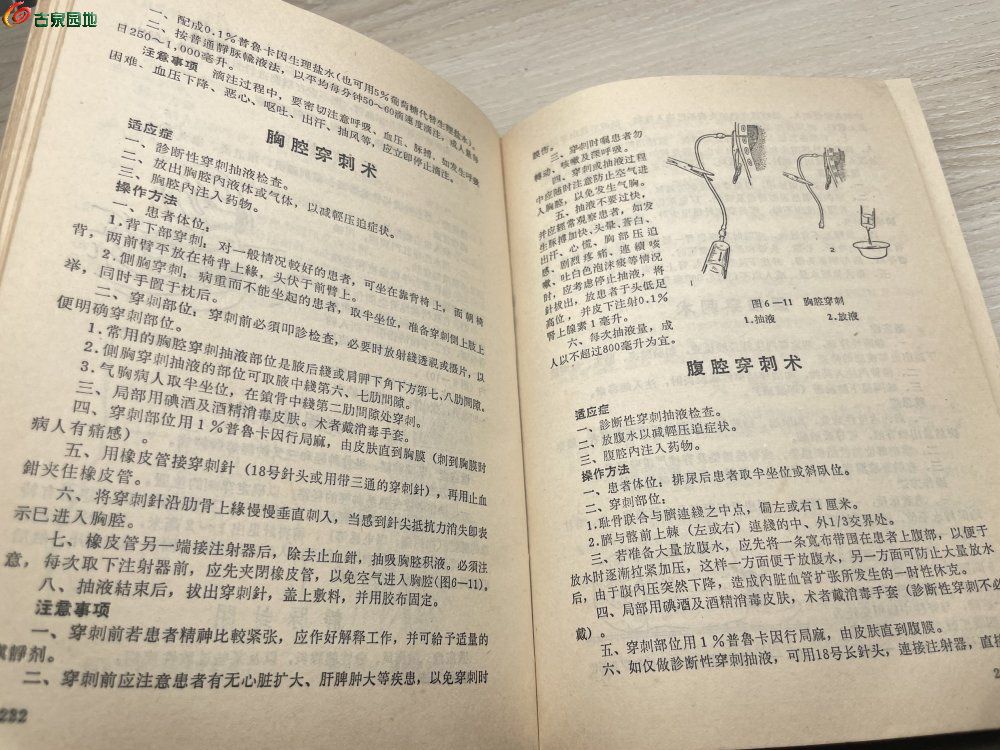 古泉园地
一、配成0.1%普鲁卡因生理盐水(也可用5%葡萄糖代替生理盐水)。
二、按普通靜脉輸液法，以平均每分钟50～60滴速度滴注，成人量每
日250～1,000毫升。
注意事项 滴注过程中，要密切注意呼吸、血压、脉搏，如发生呼吸
困难、血压下降、恶心、呕吐、出汗、抽风等，应立即停止滴注。
胸腔穿刺术
适应症
一、診断性穿刺抽液检查。
二、放出胸腔内液体或气体，以减輕压迫症状。
三、胸腔内注入药物。
操作方法
一、患者体位：
1.背下部穿刺：对一般情况較好的患者，可坐在靠背椅上，面朝椅
背，两前臂平放在椅背上緣，头伏于前臂上。
2.側胸穿刺：病重而不能坐起的患者，取半坐位，准备穿刺側上肢上
举，同时手置于枕后。
二、穿刺部位：穿刺前必須叩診检查，必要时放射綫透視或摄片，以
便明确穿刺部位。
1.常用的胸腔穿刺抽液部位是腋后綫或肩胛下角下方第七、八肋間隙。
2.側胸穿刺抽液的部位可取腋中綫第六、七肋間隙。
3.气胸病人取半坐位，在鎖骨中綫第二肋間隙处穿刺。
三、局部用碘酒及酒精消毒皮肤。术者戴消毒手套。
四、穿刺部位用1%普鲁卡因行局麻，由皮肤直到胸膜（刺到胸膜时
病人有痛感）。
五、用橡皮管接穿刺針（18号針头或用带三通的穿刺針），再用止血
鉗夹住橡皮管。
六、将穿刺針沿肋骨上緣慢慢垂直刺入，当感到針尖抵抗力消失即表
示已进入胸腔。
七、橡皮管另一端接注射器后，除去止血鉗，抽吸胸腔积液。必须注
意，每次取下注射器前，应先夹閉橡皮管，以免空气进入胸腔(图6—11)。
八、抽液結束后，拔出穿刺針，盖上敷料，并用胶布固定。
注意事项
一、穿刺前若患者精神比較紧张，应作好解釋工作，并可給予适量的
鎮靜剂。
二、穿刺前应注意患者有无心脏扩大、肝脾肿大等疾患，以免穿刺时
232
誤伤。
三、穿刺时嘱患者勿
轉动、咳嗽及深呼吸。
四、穿刺或抽液过程
中应随时注意防止空气进
入胸腔，以免发生气胸。
五、抽液不要过快，
并应經常观察患者，如发
生脉搏加快、头暈、蒼白、
出汗、心慌、胸部压迫
感、剧烈疼痛、連續咳
嗽、吐白色泡沫痰等情况
时，应考虑停止抽液，将
針拔出，放患者于头低足
高位，并皮下注射0.1%
肾上腺素1毫升。
六、每次抽液量，成
人以不超过800毫升为宜。
1
2
图6—11 胸腔穿刺
1.抽液 2.放液
腹腔穿刺术
适应症
一、診断性穿刺抽液检查。
二、放腹水以减輕压迫症状。
三、腹腔内注入药物。
操作方法
一、患者体位：排尿后患者取半坐位或斜臥位。
二、穿刺部位：
1.耻骨联合与臍連綫之中点，偏左或右1厘米。
2.臍与髂前上棘（左或右）連綫的中、外1/3交界处。
三、若准备大量放腹水，应先将一条寬布带围在患者上腹部，以便于
放水时逐渐拉紧加压，这样一方面便于放腹水，另一方面可防止大量放水
后，由于腹内压突然下降，造成内脏血管扩张所发生的一时性休克。
四、局部用碘酒及酒精消毒皮肤，术者戴消毒手套（診断性穿刺不必
戴）。
五、穿刺部位用1%普鲁卡因行局麻，由皮肤直到腹膜。
六、如仅做診断性穿刺抽液，可用18号长針头，連接注射器，直接
2